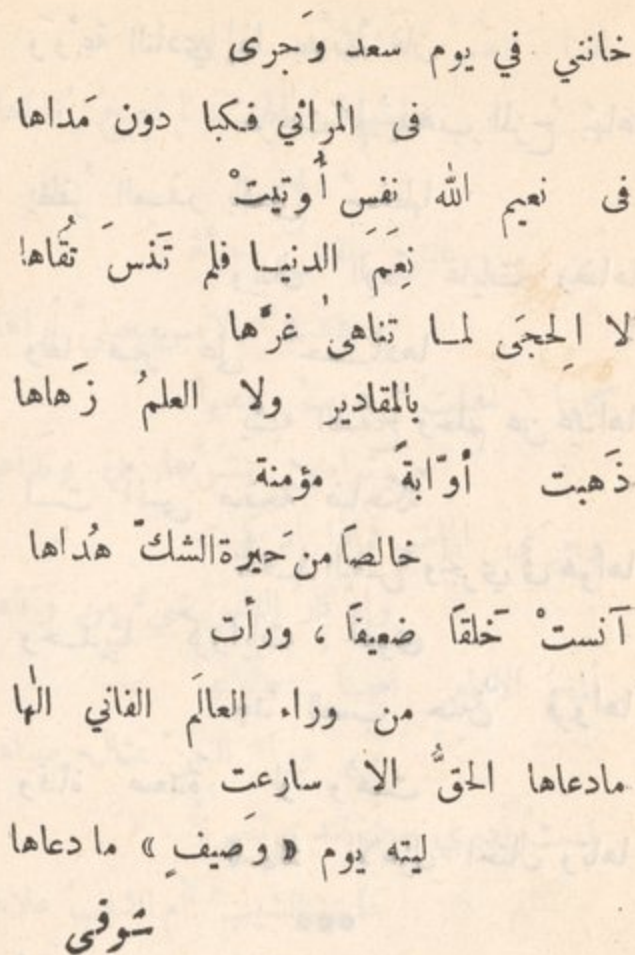 خانني في يوم سعد وَجرى
فى المراثي فكبا دون مَداها
فى نعيم الله نفس أُوتيتْ
نِعَمَ الدنيـا فلم تَنْسَ تُقَاها
لا الِحجَى لمـا تناهىْ غرَّها
بالمقادير ولا العلمُ زَهاها
ذَهبت أوّابةً مؤمنة
خالصاً من حَيرة الشكّ هُداها
آنستْ خَلقاً ضعيفاً ، ورأت
من وراء العالَم الفاني الٰها
مادعاها الحقُّ الا سارعت
ليته يوم « وَصيفٍ » ما دعاها
شوقى